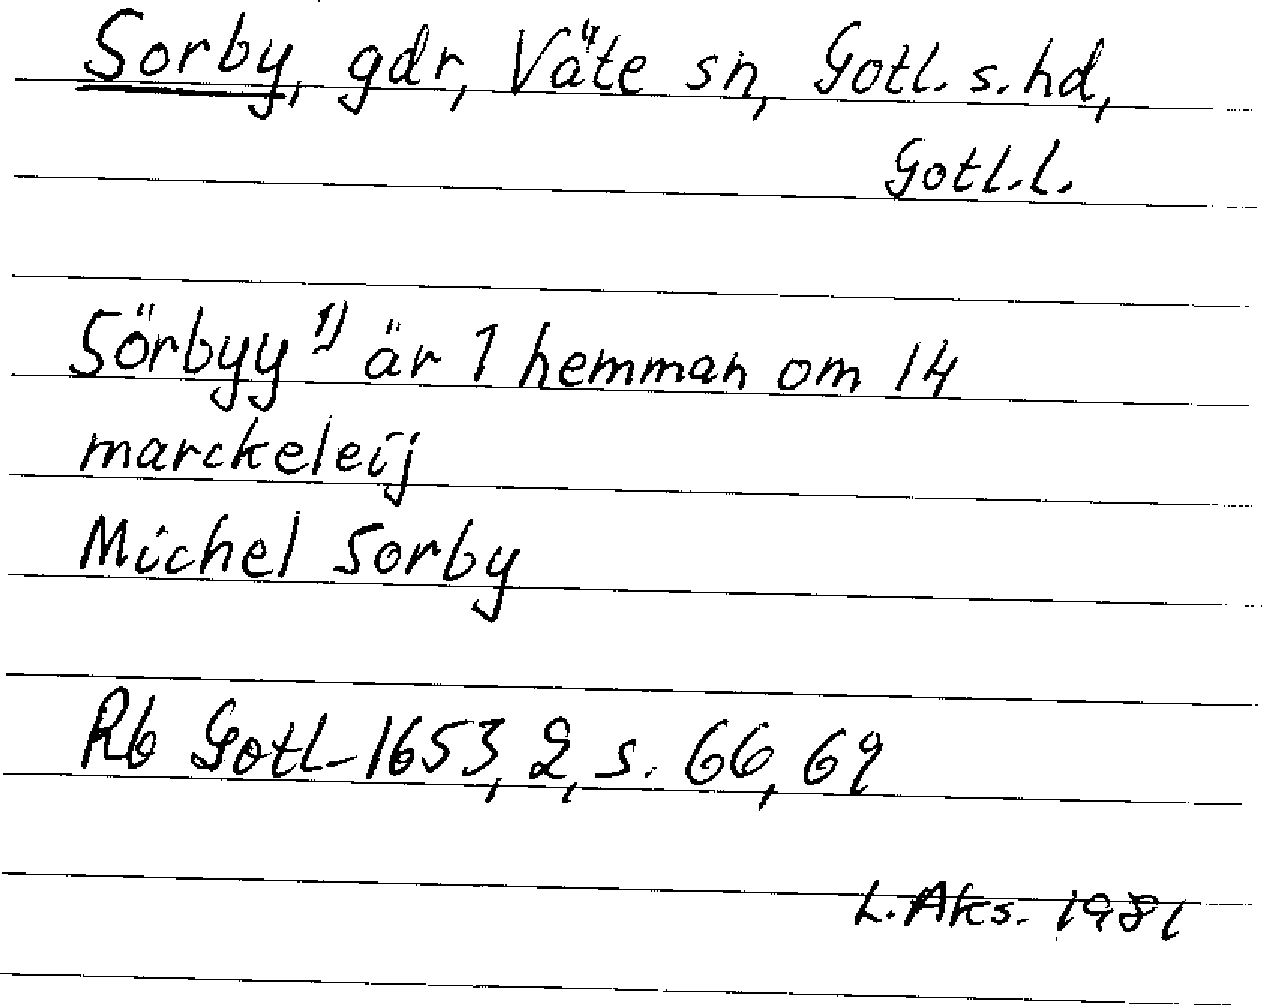 Sorby, gdr, Väte sn, Gotl. s. hd,
Gotl. l.
Sörbyy 1) är 1 hemman om 14
marckeleij
Michel Sorby
Rb Gotl 1653, 2, s. 66, 69
L. Aks. 1981